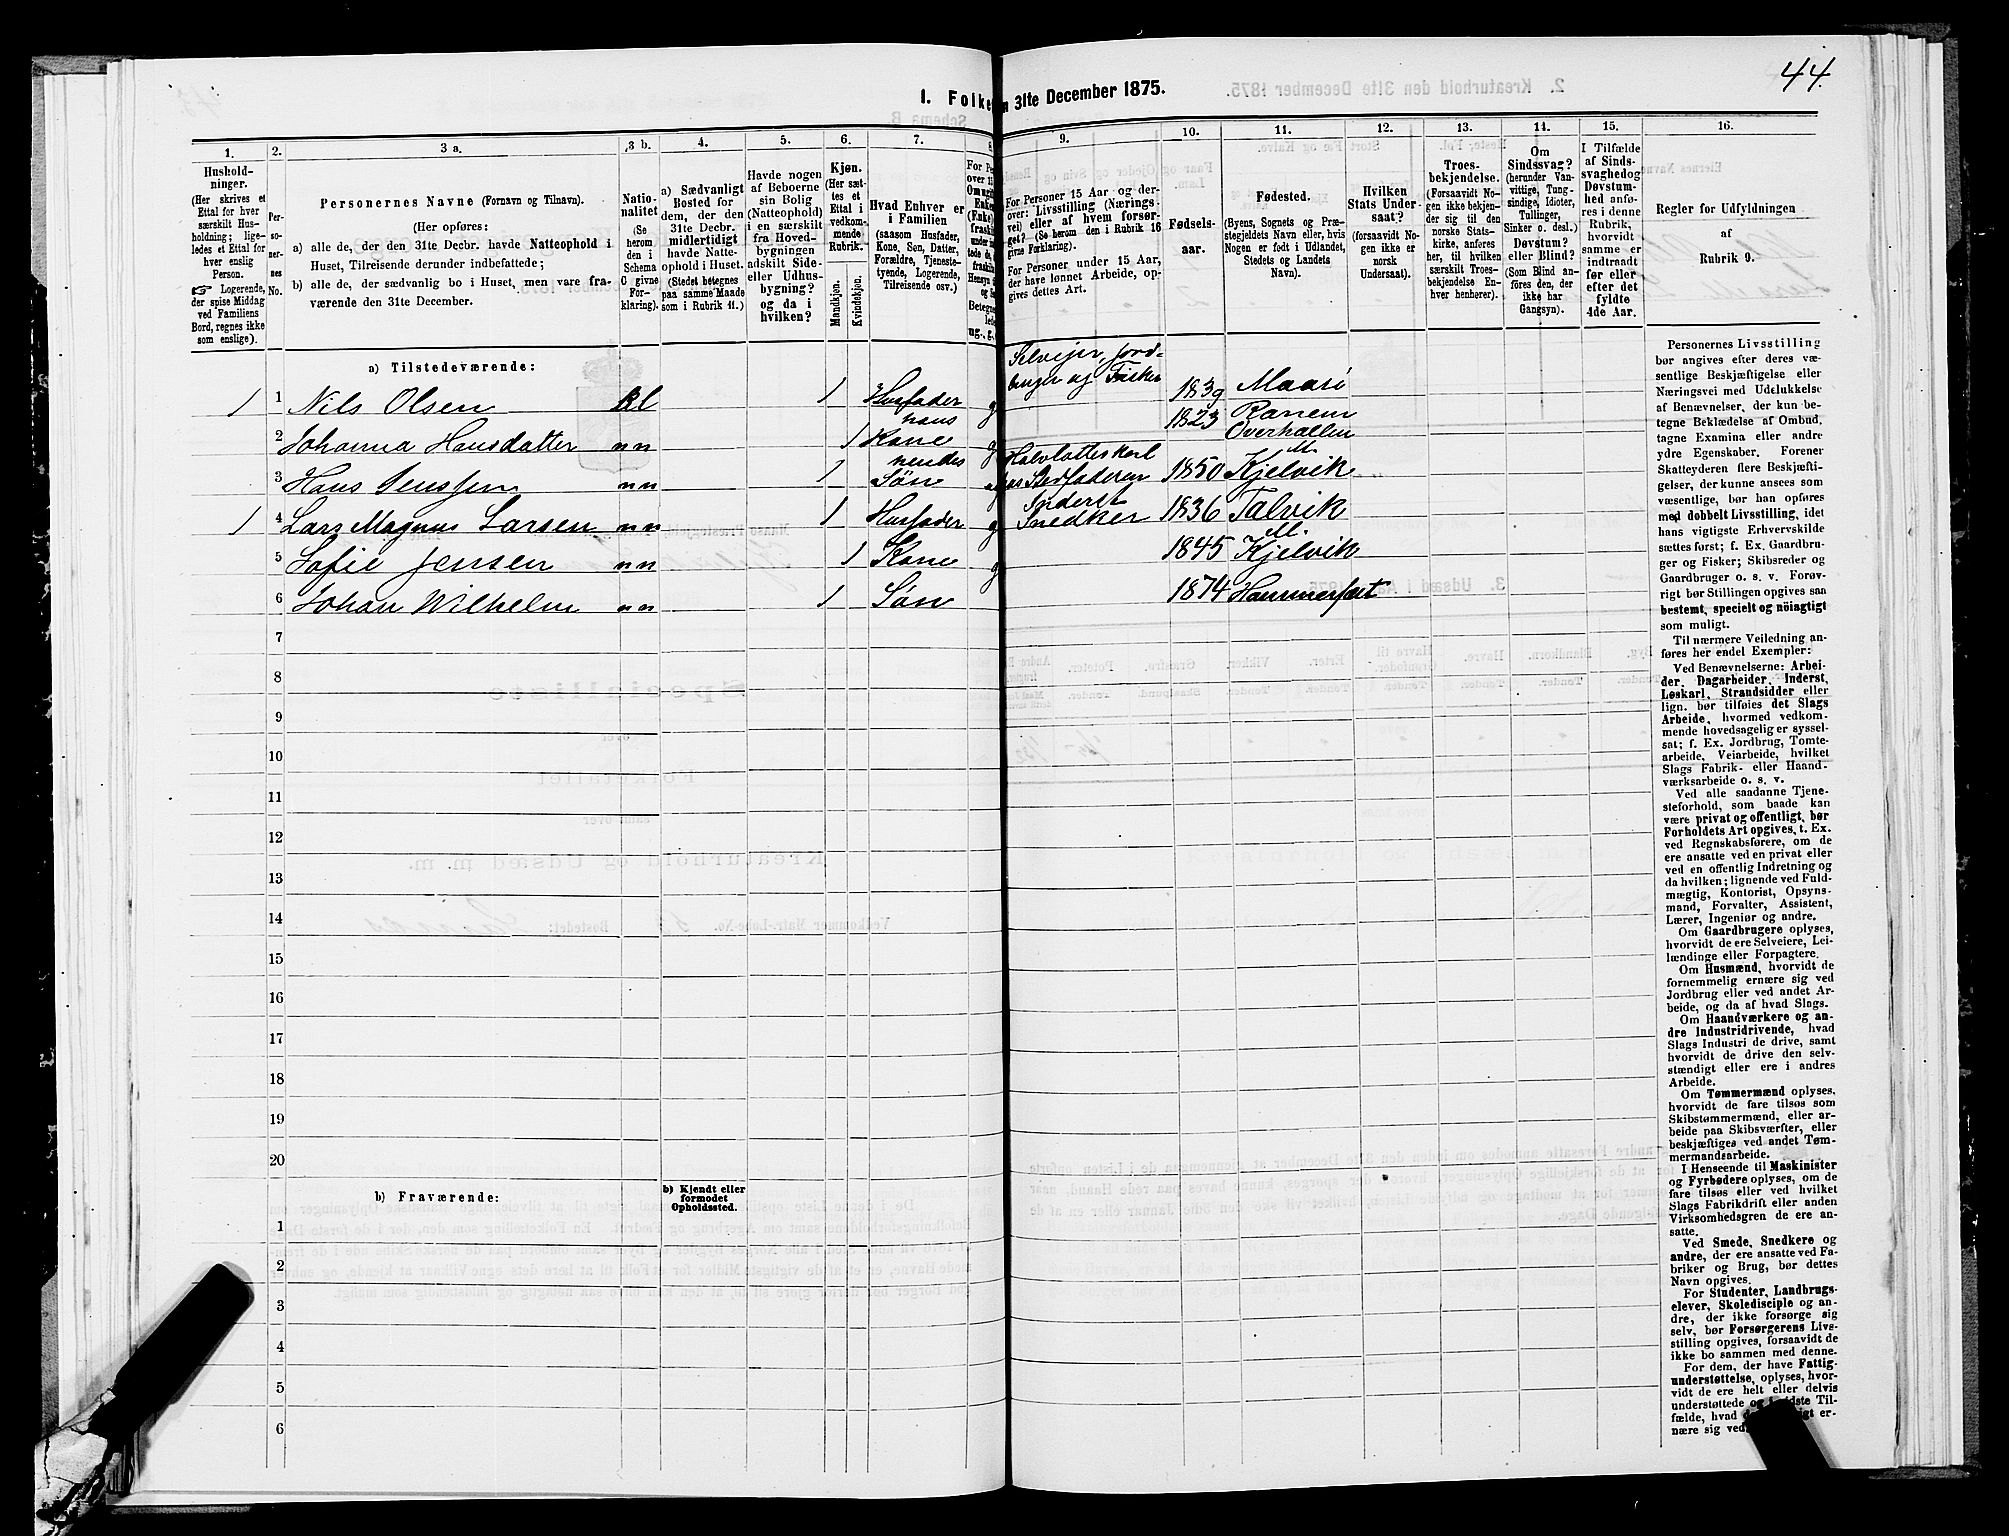 44.
1. Folke n 31te December 1875.
1.
Hushold-
ninger.
(Her skrives et
Ettal for hver
særskilt Hus-
holdning; lige-
ledes et Ettal for
hver enslig
Person.
☞ Logerende,
der spise Middag
ved Familiens
Bord, regnes ikke
som enslige).
2.
Per-
so-
ner-
nes
No.
3 a.
Personernes Navne (Fornavn og Tilnavn).
(Her opføres:
a) alle de, der den 31te Decbr. havde Natteophold i
Huset, Tilreisende derunder indbefattede;
b) alle de, der sædvanlig bo i Huset, men vare fra-
værende den 31te December.
3 b.
Natio-
nalitet
(Se
herom
den i
Schema
O givne
For-
klaring).
4.
a) Sædvanligt
Bosted for
dem, der den
31te Decbr.
midlertidigt
havde Natte-
ophold i Huset.
(Stedet betegnes
paa samme Maade
som i Rubrik 11.)
5.
Havde nogen
af Beboerne
sin Bolig
(Natteophold)
i en særskilt
fra Hoved-
bygningen
adskilt Side-
eller Udhus-
bygning?
og da i
hvilken?
6.
Kjøn.
(Her sæt-
tes et
Ettal i
vedkom-
mende
Rubrik.
Mandkjøn.
Kvindekjøn.
7.
Hvad Enhver er
i Familien
(saasom Husfader,
Kone, Søn, Datter,
Forældre, Tjeneste-
tyende, Logerende,
Tilreisende osv.)
8.
9.
For Personer 15 Aar og der-
over: Livsstilling (Nærings-
vei) eller af hvem forsør-
get? (Se herom den i Rubrik 16
givne Forklaring).
For Personer under 15 Aar,
der have lønnet Arbeide, op-
gives dettes Art.
10.
Fødsels-
aar.
11.
Fødested.
(Byens, Sognets og Præ-
stegjeldets Navn eller, hvis
Nogen er født i Udlandet,
Stedets og Landets
Navn).
12.
Hvilken
Stats Under-
saat?
(forsaavidt No-
gen ikke er
norsk
Undersaat).
13.
Troes-
bekjendelse.
(Forsaavidt No-
gen ikke bekjen-
der sig til den
norske Stats-
kirke, anføres
her, til hvilken
særskilt Troes-
bekjendelse En-
hver henhører).
14.
Om
Sindssvag?
(herunder Van-
vittige, Tung-
sindige, Idioter,
Tullinger,
Sinker o. desl.)
Døvstum?
eller Blind?
(Som Blind an-
føres den, der
ikke har
Gangsyn).
15.
I Tilfælde
af Sinds-
svaghed og
Døvstum-
hed anfø-
res i denne
Rubrik,
hvorvidt
samme er
indtraadt
før eller
efter det
fyldte
4de Aar.
16.
Regler for Udfyldningen
af
Rubrik 9.
a) Tilstedeværende:
1 1 Nils Olsen Bl 1 Husfader g Selveier, Jord-
bruger og Fisker 1839 Maasö
2 Johanna Hansdatter " " 1 hans
Kone g 1823 Ranem
Overhallen
3 Hans Jenssen " " 1 hendes
Søn Halvlotteskarl
Stedfaderen 1850 M.
Kjelvik
1 4 Lars Magnus Larsen " " 1 Husfader g Inderst
Snedker 1836 Talvik
5 Sofie Jensen " " 1 Kone g 1845 M.
Kjelvik
6 Johan Wilhelm " " 1 Søn 1874 Hammerfest
7
8
9
10
11
12
13
14
15
16
17
18
19
20
b) Fraværende:
b) Kjendt eller
formodet
Opholdssted.
1
2
3
4
5
6
Personernes Livsstilling
bør angives efter deres væ-
sentlige Beskjæftigelse eller
Næringsvei med Udelukkelse
af Benævnelser, der kun be-
tegne Beklædelse af Ombud,
tagne Examina eller andre
ydre Egenskaber. Forener
Skatteyderen flere Beskjæfti-
gelser, der kunne ansees som
væsentlige, bør han opføres
med dobbelt Livsstilling, idet
hans vigtigste Erhvervskilde
sættes først; f. Ex. Gaardbru-
ger og Fisker; Skibsreder og
Gaardbruger o. s. v. Forøv-
rigt bør Stillingen opgives saa
bestemt, specielt og nöiagtigt
som muligt.
Til nærmere Veiledning an-
føres her endel Exempler:
Ved Benævnelserne: Arbei-
der, Dagarbeider, Inderst,
Løskarl, Strandsidder eller
lign. bør tilføies det Slags
Arbeide, hvormed vedkom-
mende hovedsagelig er syssel-
sat; f. Ex. Jordbrug, Tomte-
arbeide, Veiarbeide, hvilket
Slags Fabrik- eller Haand-
værksarbeide o. s. v.
Ved alle saadanne Tjene-
steforhold, som baade kan
være privat og offentligt, bør
Forholdets Art opgives, t. Ex.
ved Regnskabsførere, om de
ere ansatte ved en privat eller
ved en offentlig Indretning og
da hvilken; lignende ved Fuld-
mægtig, Kontorist, Opsyns-
mand, Forvalter, Assistent,
Lærer, Ingeniør og andre.
Om Gaardbrugere oplyses,
hvorvidt de ere Selveiere, Lei-
lændinge eller Forpagtere.
Om Husmænd, hvorvidt de
fornemmelig ernære sig ved
Jordbrug eller ved andet Ar-
beide, og da af hvad Slags.
Om Haandværkere og an-
dre Industridrivende, hvad
Slags Industri de drive, samt
hvorvidt de drive den selv-
stændigt eller ere i andres
Arbeide.
Om Tømmermænd oplyses,
hvorvidt de fare tilsøs som
Skibstømmermænd, eller ar-
beide paa Skibsværfter, eller
beskjæftiges ved andet Tøm-
mermandsarbeide.
I Henseende til Maskinister
og Fyrbødere oplyses, om de
fare tilsøs eller ved hvilket
Slags Fabrikdrift eller anden
Virksomhedsgren de ere an-
satte.
Ved Smede, Snedkere og
andre, der ere ansatte ved Fa-
briker og Brug, bør dettes
Navn opgives.
For Studenter, Landbrugs-
elever, Skoledisciple og an-
dre, der ikke forsørge sig
selv, bør Forsørgerens Livs-
stilling opgives, forsaavidt de
ikke bo sammen med denne.
For dem, der have Fattig-
understøttelse, oplyses, hvor-
vidt de ere helt eller delvis
understøttede og sidste Til-
fælde, hvad er-
nære sig ved.